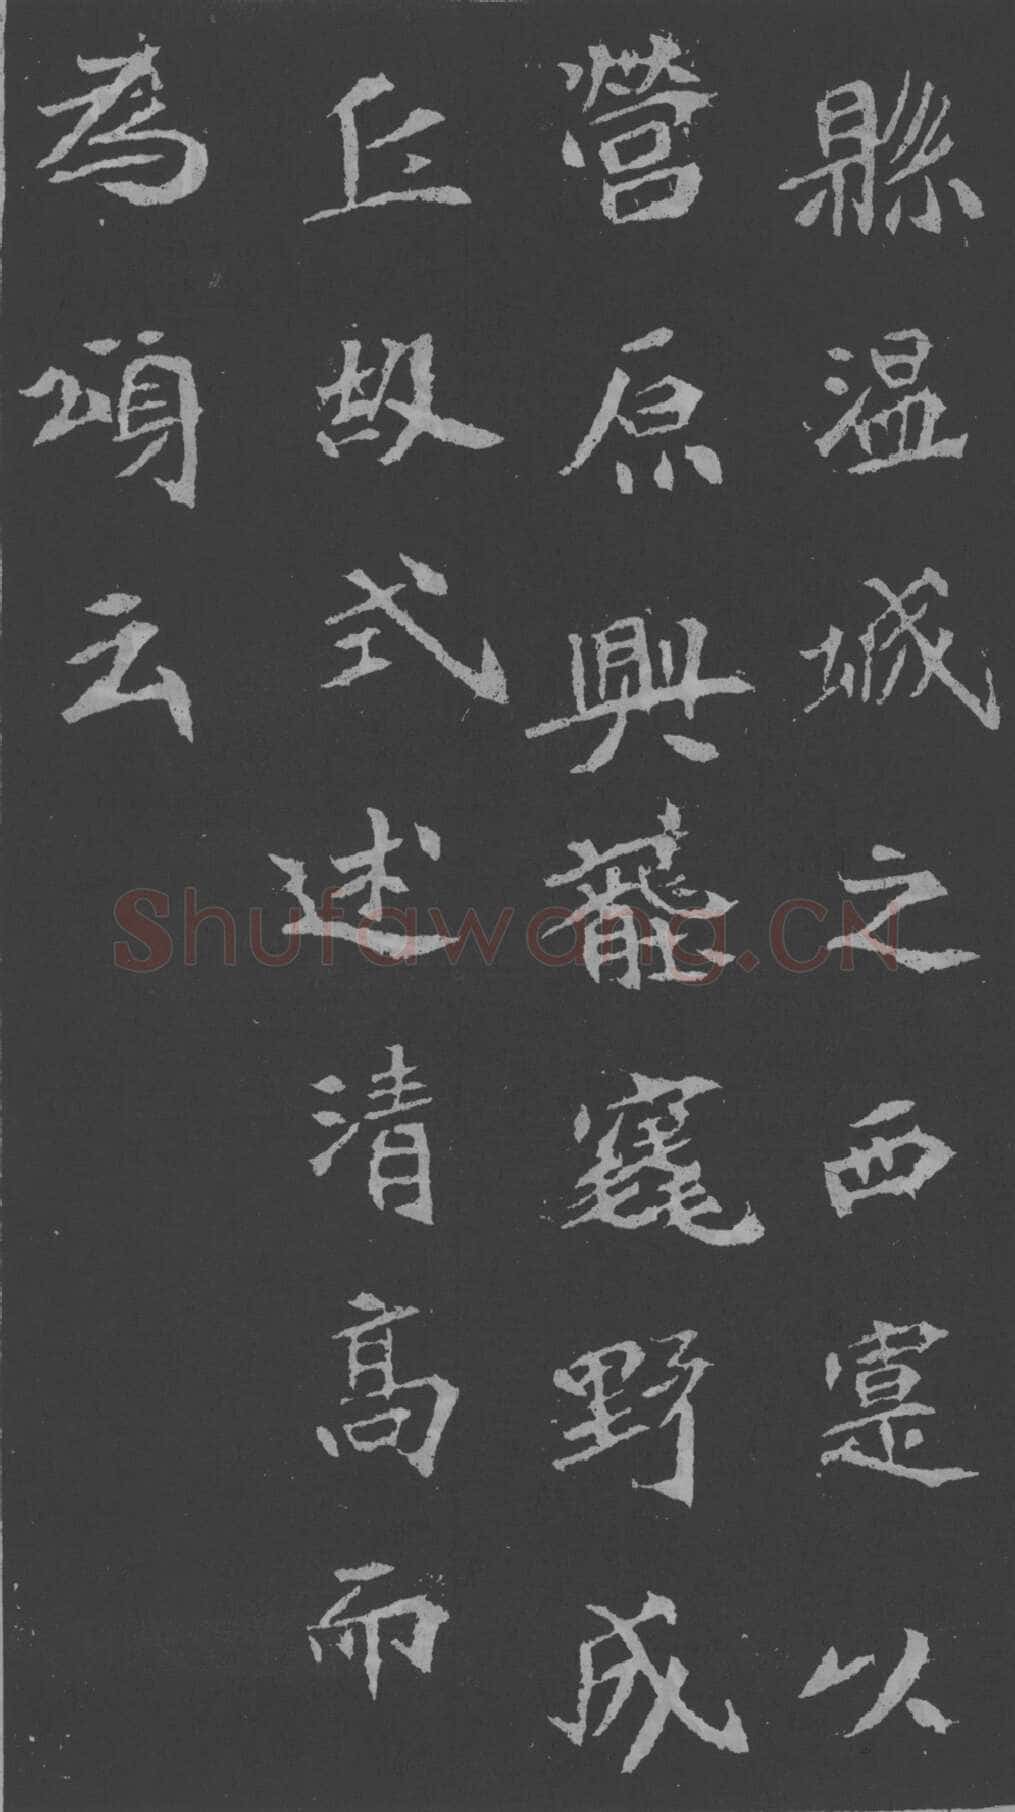 縣溫城之西寔以
營原興壟窀野成
丘故式述清高而
為頌云
Shufawang.CN